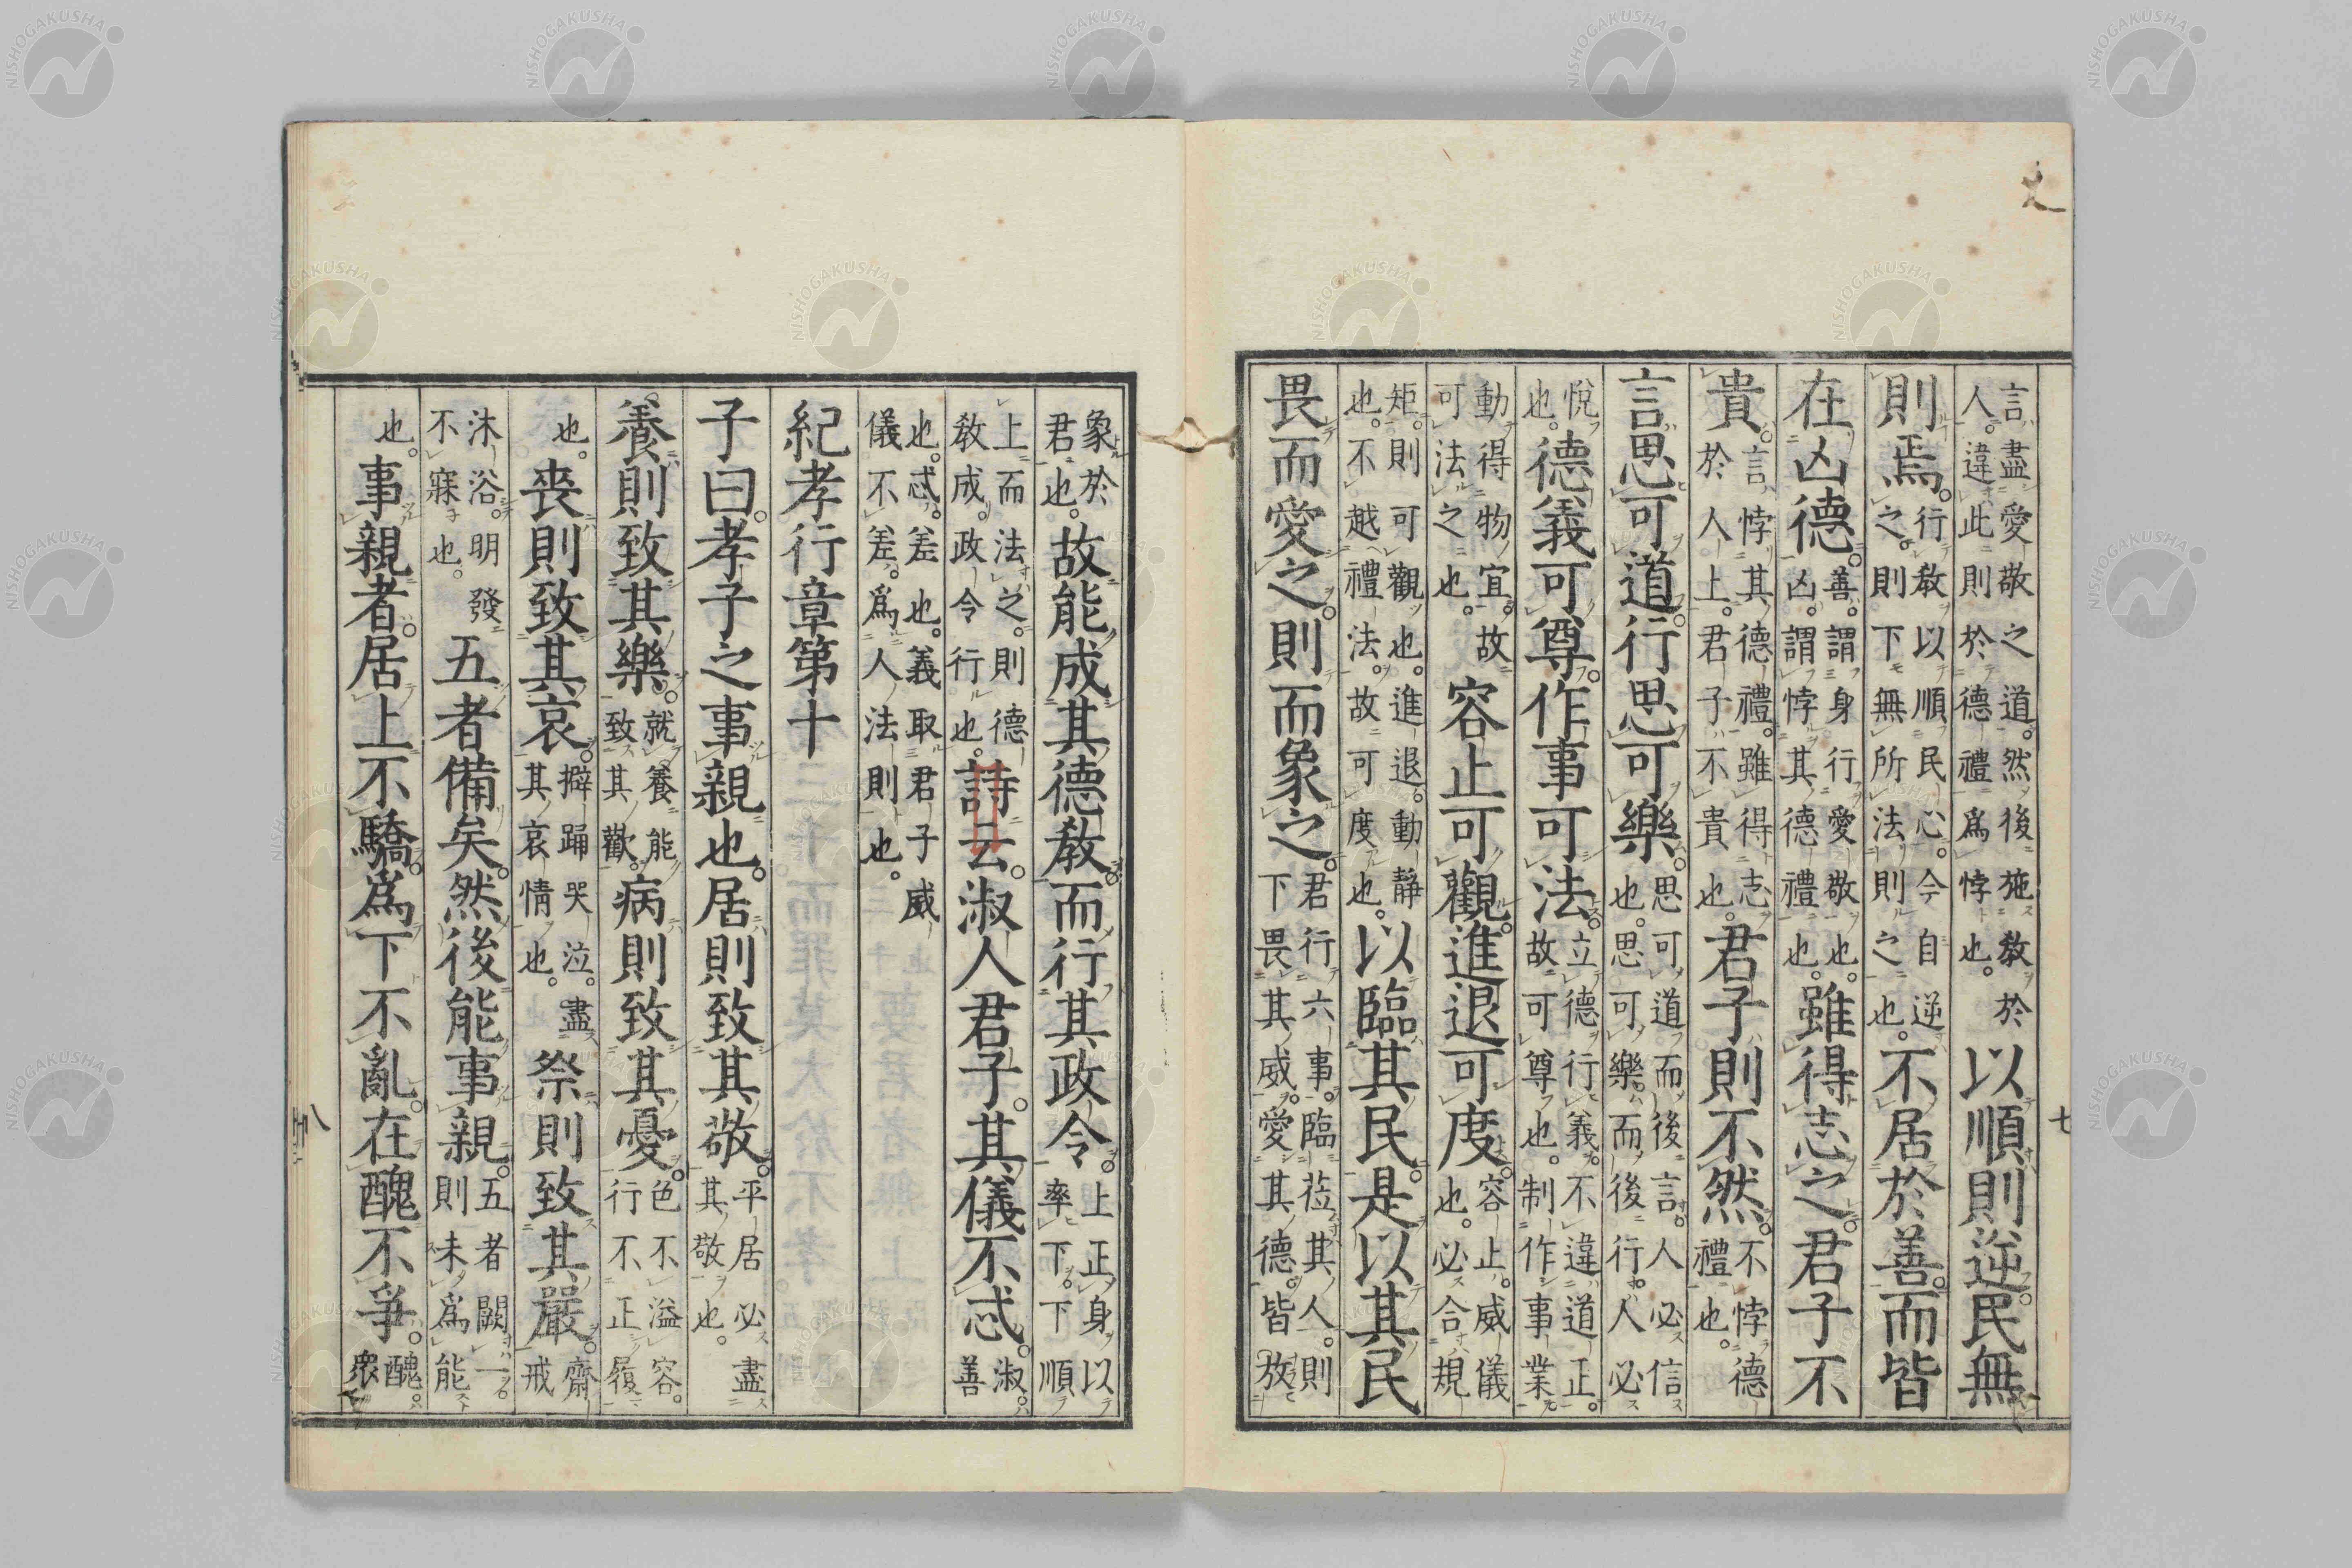 七
言盡愛敬之道。然後施教於人。違此則於德禮爲悖也。以順則逆。民無
則焉。行教以順民心。今自逆之。則下無所法則之也。不居於善。而皆
在凶德。善。謂身行愛敬也。凶。謂悖其德禮也。雖得志之。君子不
貴。言悖其德禮。雖得志於人上。君子不貴也。君子則不然。不悖德禮也。
言思可道。行思可樂。思可道而後言。人必信也。思可樂。而後行。人必
悅也。德義可尊。作事可法。立德行義。不違道正。故可尊也。制作事業。
動得物宜。故可法之也。容止可觀。進退可度。容止。威儀也。必合規
矩。則可觀也。進退。動靜也。不越禮法。故可度也。以臨其民。是以其民
畏而愛之。則而象之。君行六事。臨莅其人。則下畏其威。愛其德。皆放
象於君也。故能成其德教。而行其政令。上正身以率下。下順
上而法之。則德教成。政令行也。詩云。淑人君子。其儀不忒。淑。善
也。忒。差也。義取君子威儀不差。爲人法則也。
紀孝行章第十
子曰。孝子之事親也。居則致其敬。平居必盡其敬也。
養則致其樂。就養能致其歡。病則致其憂。色不溢容。行不正履
也。喪則致其哀。擗踊哭泣。盡其哀情也。祭則致其嚴。齋戒
沐浴。明發不寐也。五者備矣。然後能事親。五者闕一。則未爲能
也。事親者。居上不驕。爲下不亂。在醜不爭。醜。衆
八
NISHOGAKUSHA